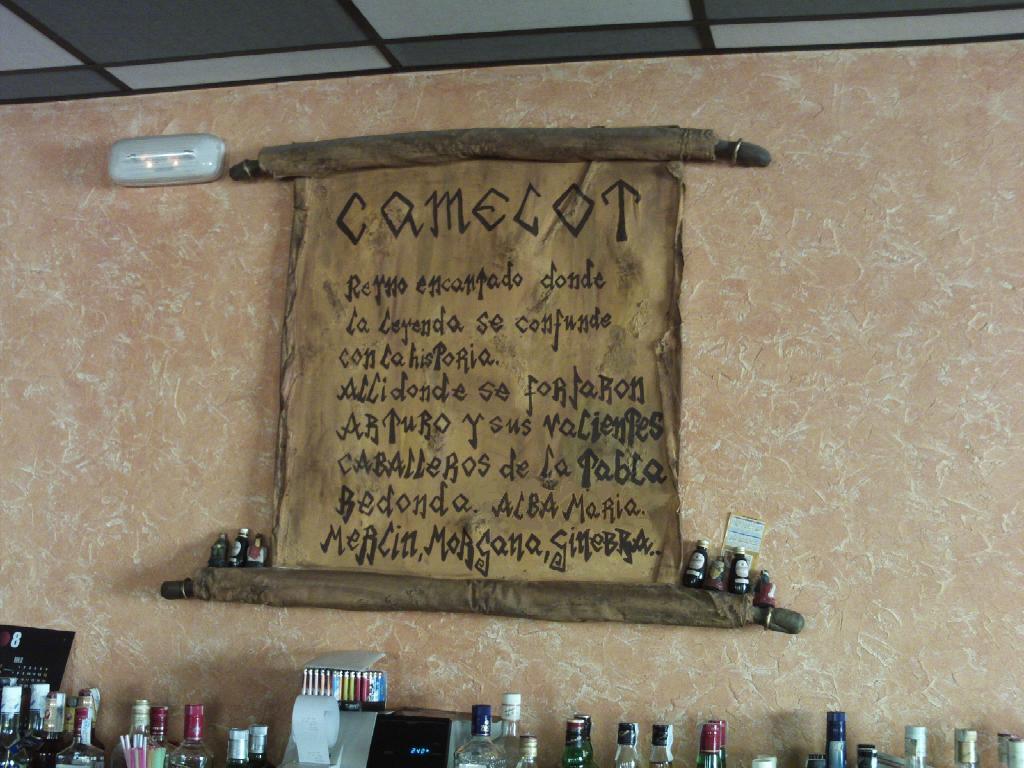 CAMELOT
Reyno encantado donde
la leyenda se confunde
con la historia.
Alli donde se forjaron
ARTURO y sus valientes
CABALLEROS de la Tabla
Redonda. ALBA MARIA.
MERLIN, MORGANA, GINEBRA..
8
2:40